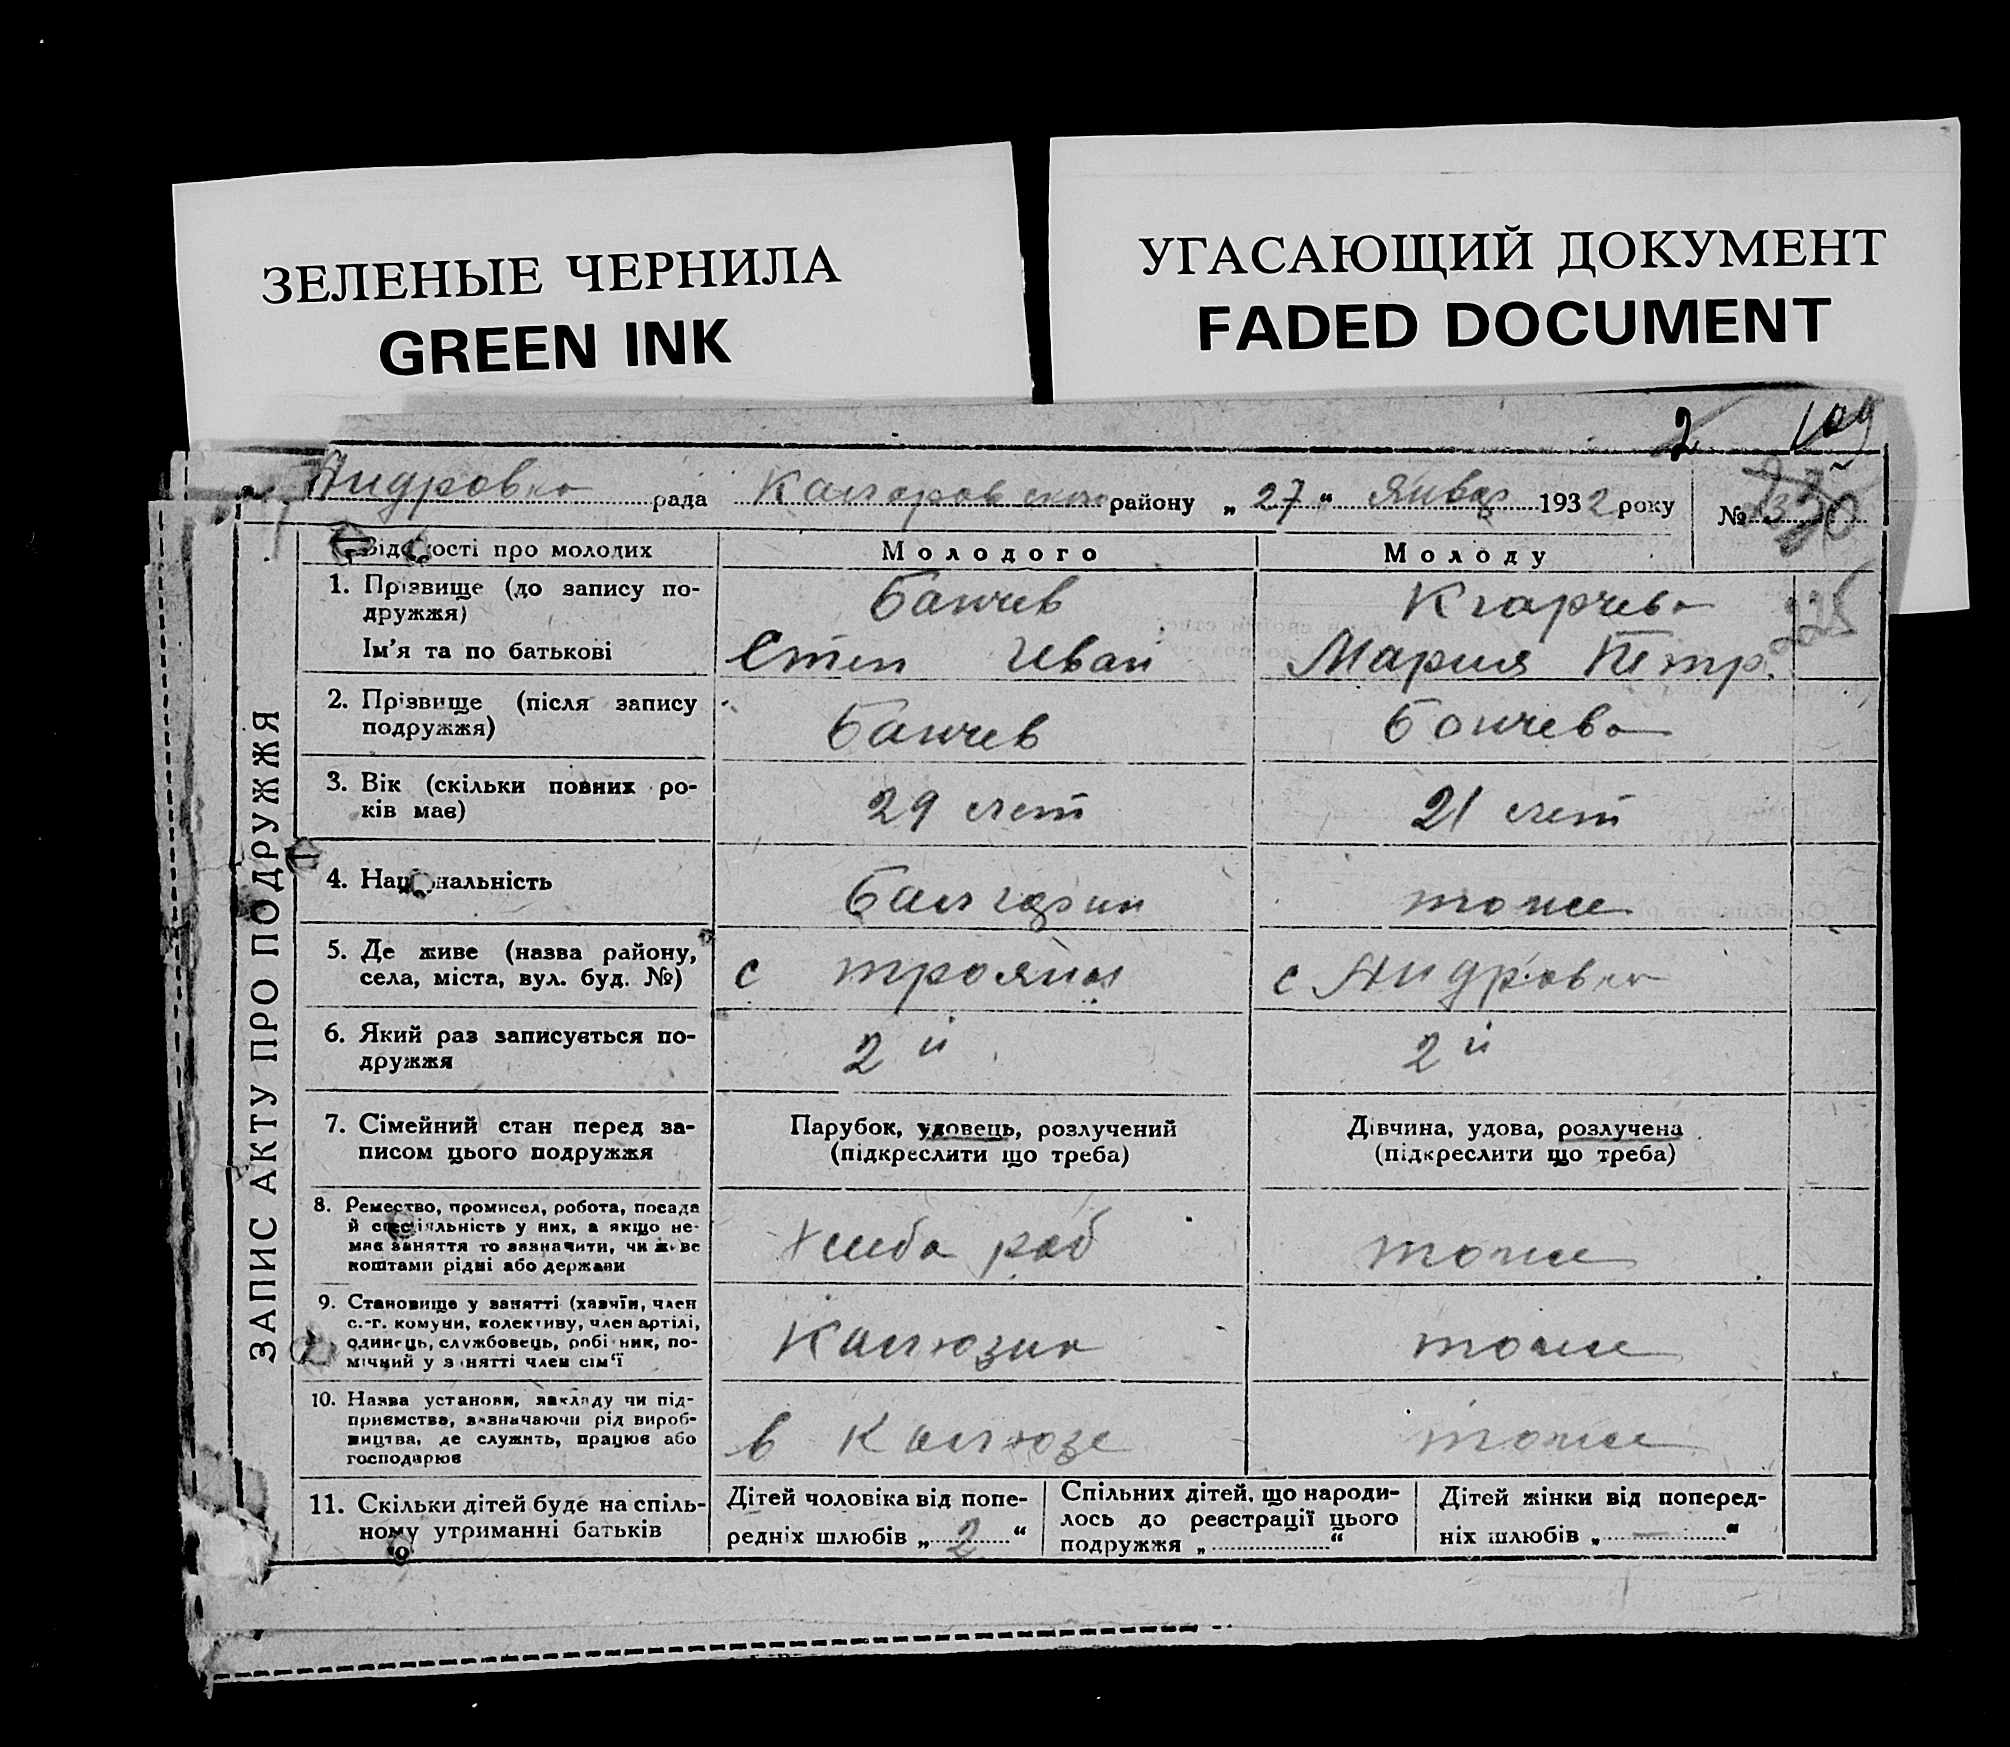 ЗЕЛЕНЫЕ ЧЕРНИЛА
GREEN INK
УГАСАЮЩИЙ ДОКУМЕНТ
FADED DOCUMENT
2 109
Андровка рада района „27“ Январ 1932 року №
ЗАПИС АКТУ ПРО ПОДРУЖЖЯ
Відомості про молодих Молодого Молоду
1. Прізвище (до запису подружжя) Банчев
Ім'я та по батькові Степ Иван Мария Петр.
225
2. Прізвище (після запису подружжя) Банчев Банчева
3. Вік (скільки повних років має) 29 лет 21 лет
4. Національність Балгарин тоже
5. Де живе (назва району, села, міста, вул. буд. №) с трояны с Андровка
6. Який раз записується подружжя 2й 2й
7. Сімейний стан перед записом цього подружжя Парубок, удовець, розлучений (підкреслити що треба) Дівчина, удова, розлучена (підкреслити що треба)
8. Ремество, промисел, робота, посада й спеціяльність у них, а якщо немає заняття то зазначити, чи живе коштами рідні або держави Хлеба роб тоже
9. Становище у занятті (хазяїн, член с.-г. комуни, колективу, член артілі, одинець, службовець, робітник, помічний у занятті член сім'ї тоже
10. Назва установи, закладу чи підприємства, зазначаючи рід виробництва, де служить, працює або господарює в Калхозе тоже
11. Скільки дітей буде на спільному утриманні батьків Дітей чоловіка від попередніх шлюбів „2“ Спільних дітей, що народилось до реєстрації цього подружжя „ “ Дітей жінки від попередніх шлюбів „—“